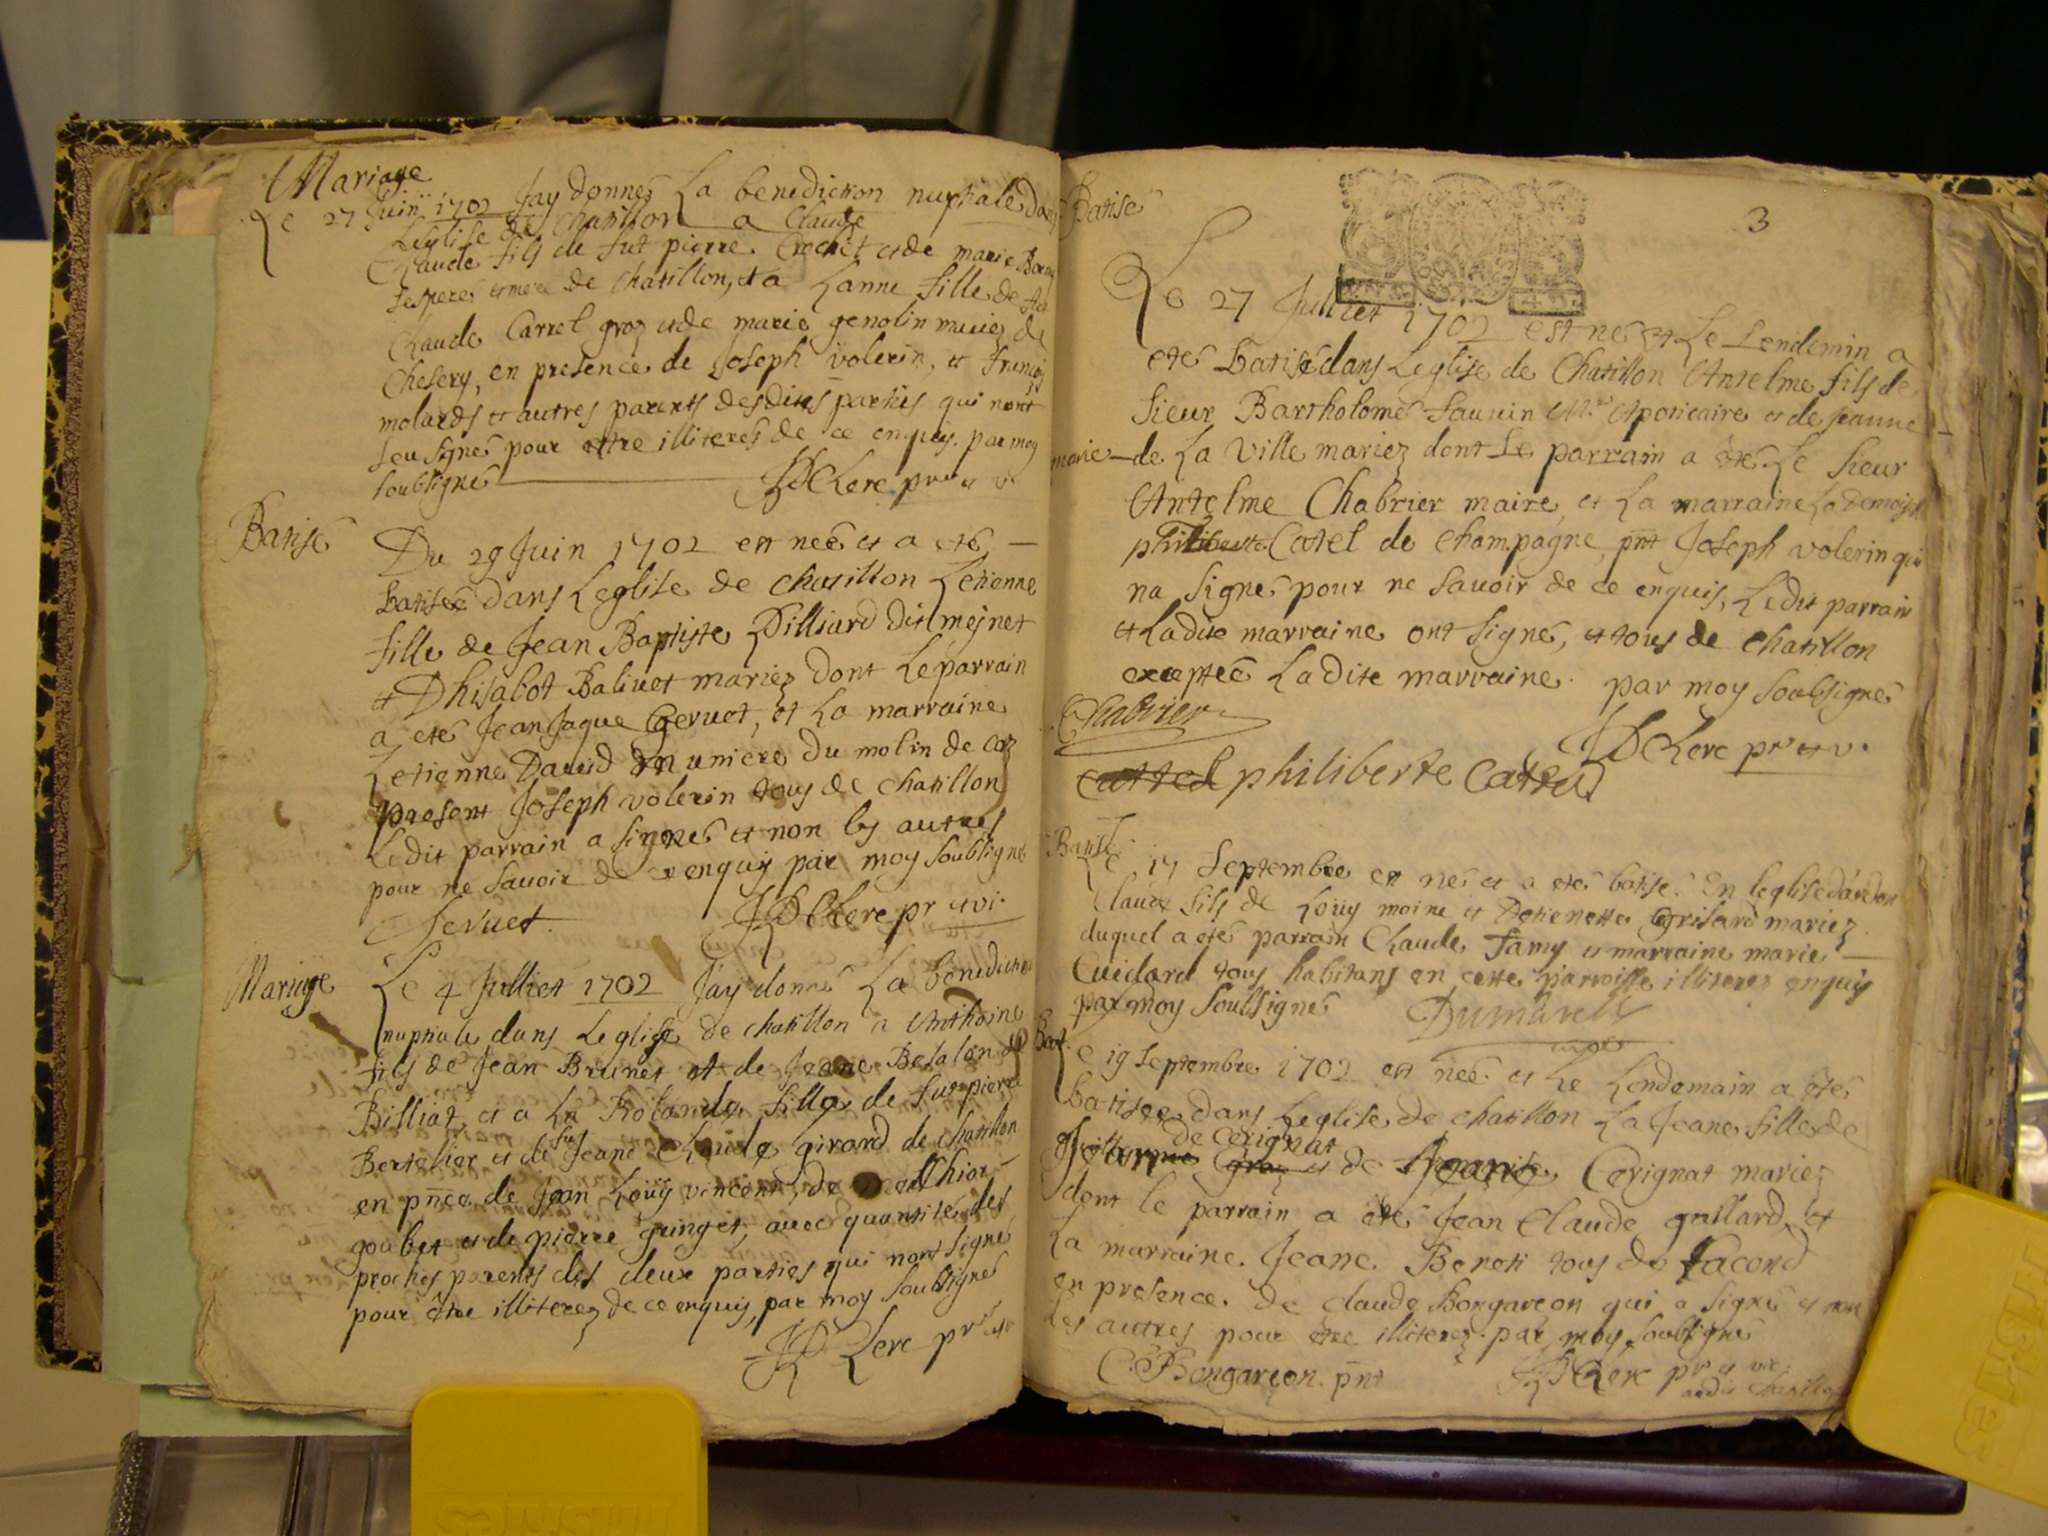 Mariage
Le 27 Juin 1702 Jay donné La benediction nuptiale dans
Leglise de Chatillon a Claude
Claude fils de fut pierre Crochet et de marie
ses peres et mere de chatillon, et a Lanne fille de
Claude Carrel groz et de marie genolin mariez de
Chesery, en presence de Joseph volerin, et françois
molards et autres parents desdites parties qui nont
seu signé pour etre illiterés de ce enquis. par moy
soubsigné JDClerc pr et vi
Batisé
Du 29 Juin 1702 est neé et a eté
Batisée dans Leglise de chatillon Letienne
fille de Jean Baptiste Dilliard dit mejnet
et Dhisabot Balivet mariez dont Le parrain
a eté Jean Jaque Gervet, et La marraine
Letienne David Munière du molin de coz
present Joseph volerin tous de chatillon
Ledit parrain a signé et non les autres
pour ne Savoir de ce enquis par moy soubsigné
Jervet. JDClerc pr et vi.
Mariage
Le 4 Julliet 1702 Jay donné La benediction
nuptiale dans Leglise de chatillon a Anthoine
fils de Jean Brunet et de Jeane Besalon de
Billiat, et a La Rolande fille de fut pierre
Bertelier et de fut Jeane Claude girard de chatillon
en pnce de Jean Louÿ vincent, de melchior
goubet et de pierre guinget, avec quantité des
proches parents des deux parties qui nont signé
pour être illiterez de ce enquis, par moy soubsigné
JDClerc pr et vi
Batisé
3
Le 27 Julliet 1702 est né et Le Lendemin a
eté Batisé dans Leglise de Chatillon Antelme fils de
sieur Bartholomé Sauvin Mre Apoticaire et de jeanne
marie de La Ville mariez dont Le parrain a été Le sieur
Antelme Chabrier maire, et La marraine La demoiselle
philiberte Catel de champagne, pnt Joseph volerin qui
na signé pour ne savoir de ce enquis, Ledit parrain
et Ladite marraine ont signé, et tous de chatillon
exceptée Ladite marraine. par moy soubsigné
Chabrier JDClerc pr et v.
cattel philiberte Cattel
Batisé
Le 17 Septembre est né et a eté batisé En leglise dardon
Claude fils de Louÿ moine et Detienette Grisard mariez
duquel a eté parrain Claude famy et marraine marie
Cuidard tous habitans en cette parroisse illiterez enquis
par moy soussigné Dumarest
Bat.
Le 19 Septembre 1702 est neé et Le Lendemain a été
batisée dans Leglise de chatillon La Jeane fille de
de Cerignat
et de Cerignat mariez
dont le parrain a eté Jean Claude gallard, et
La marraine Jeane Beneti tous de Lacond
en presence de claude Bongarçon qui a signé et non
Les autres pour etre illiterez par moy soubsigné
C. Bongarçon pnt JDClerc pr et vic